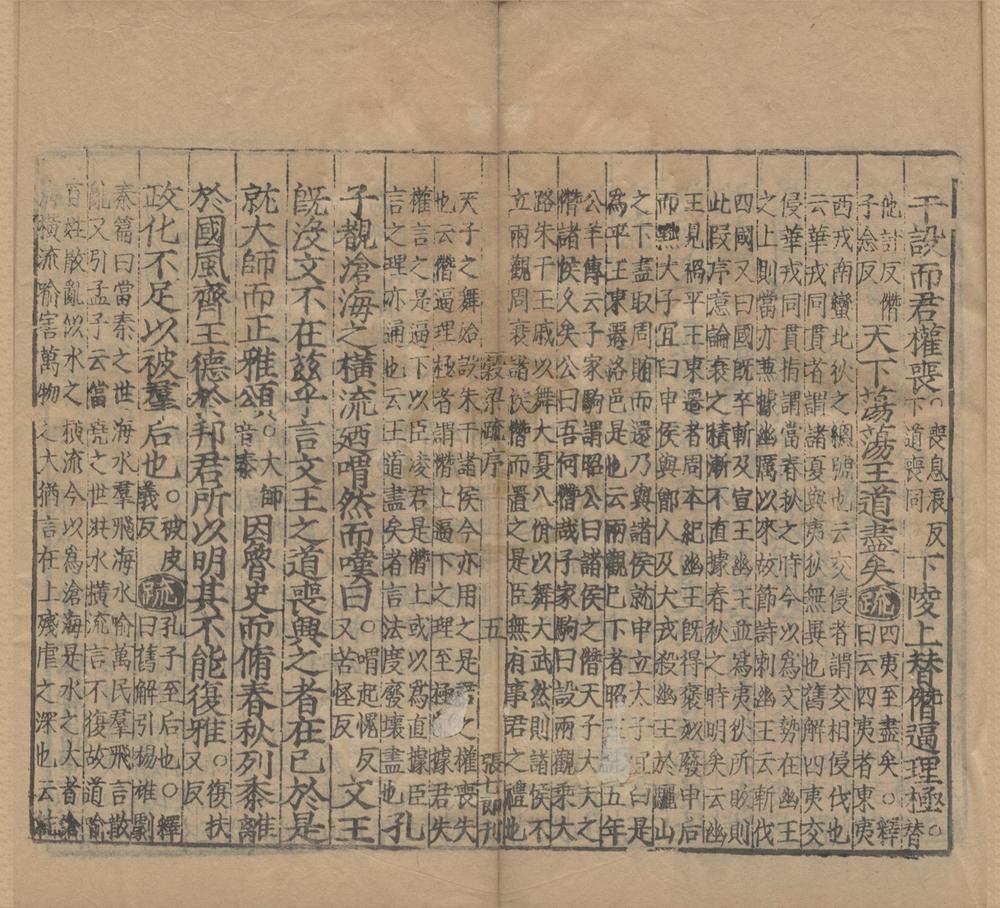 干設而君權喪。喪息浪反下道喪同下陵上替僭逼理極。替
他計反僭子念反天下蕩蕩王道盡矣疏四夷至盡矣。釋曰云四夷者東夷
西戎南蠻北狄之緫號也云交侵者謂交相侵伐也
云華戎同貫者謂諸夏與夷狄無異也舊解四夷交
侵華戎同貫指謂當春秋之時今以為文勢在幽王
之上則當亦兼據幽厲以來故節詩刺幽王云斬伐
四國又曰國既卒斬及宣王幽王並為夷狄所敗則
此叚序意論衰之積漸不直據春秋之時明矣云幽
王見禍平王東遷者周本紀幽王既得褒姒廢申后
而黜大子宜臼申侯與鄫人及犬戎殺幽王於驪山
之下盡取周賂而還乃與諸侯就申立太子宜臼是
為平王東遷洛邑是也云兩觀已下者昭五年
公羊傳云子家駒謂昭公曰諸侯之僭天子大夫之
僭諸侯久矣公曰吾何僭哉子家駒曰設兩觀乘大
路朱干玉戚以舞大夏八佾以舞大武然則諸侯不
立兩觀周衰諸侯僭而置之是臣無有事君之禮也
穀梁疏序 五 張七郎刊
天子之舞始設朱干諸侯今亦用之是君之權喪失
也云僭逼理極者謂僭上逼下之理至極據君失
權言之是逼下以臣凌君是僭上或以為直據臣
言之理亦通也云王道盡矣者言法度廢壞盡也孔
子覩滄海之橫流廼喟然而嘆曰。喟起愧反又苦怪反文王
旣沒文不在茲乎言文王之道喪興之者在己於是
就大師而正雅頌。大師音泰因魯史而脩春秋列黍離
於國風齊王德於邦君所以明其不能復雅。復扶又反
政化不足以被羣后也。被皮義反疏孔子至后也。釋曰舊解引揚雄劇
秦篇曰當秦之世海水羣飛海水喻萬民羣飛言散
亂又引孟子云當堯之世洪水橫流言不復故道喻
百姓散亂似水之橫流今以為滄海是水之大者滄
海橫流喻害萬物之大猶言在上殘虐之深也云